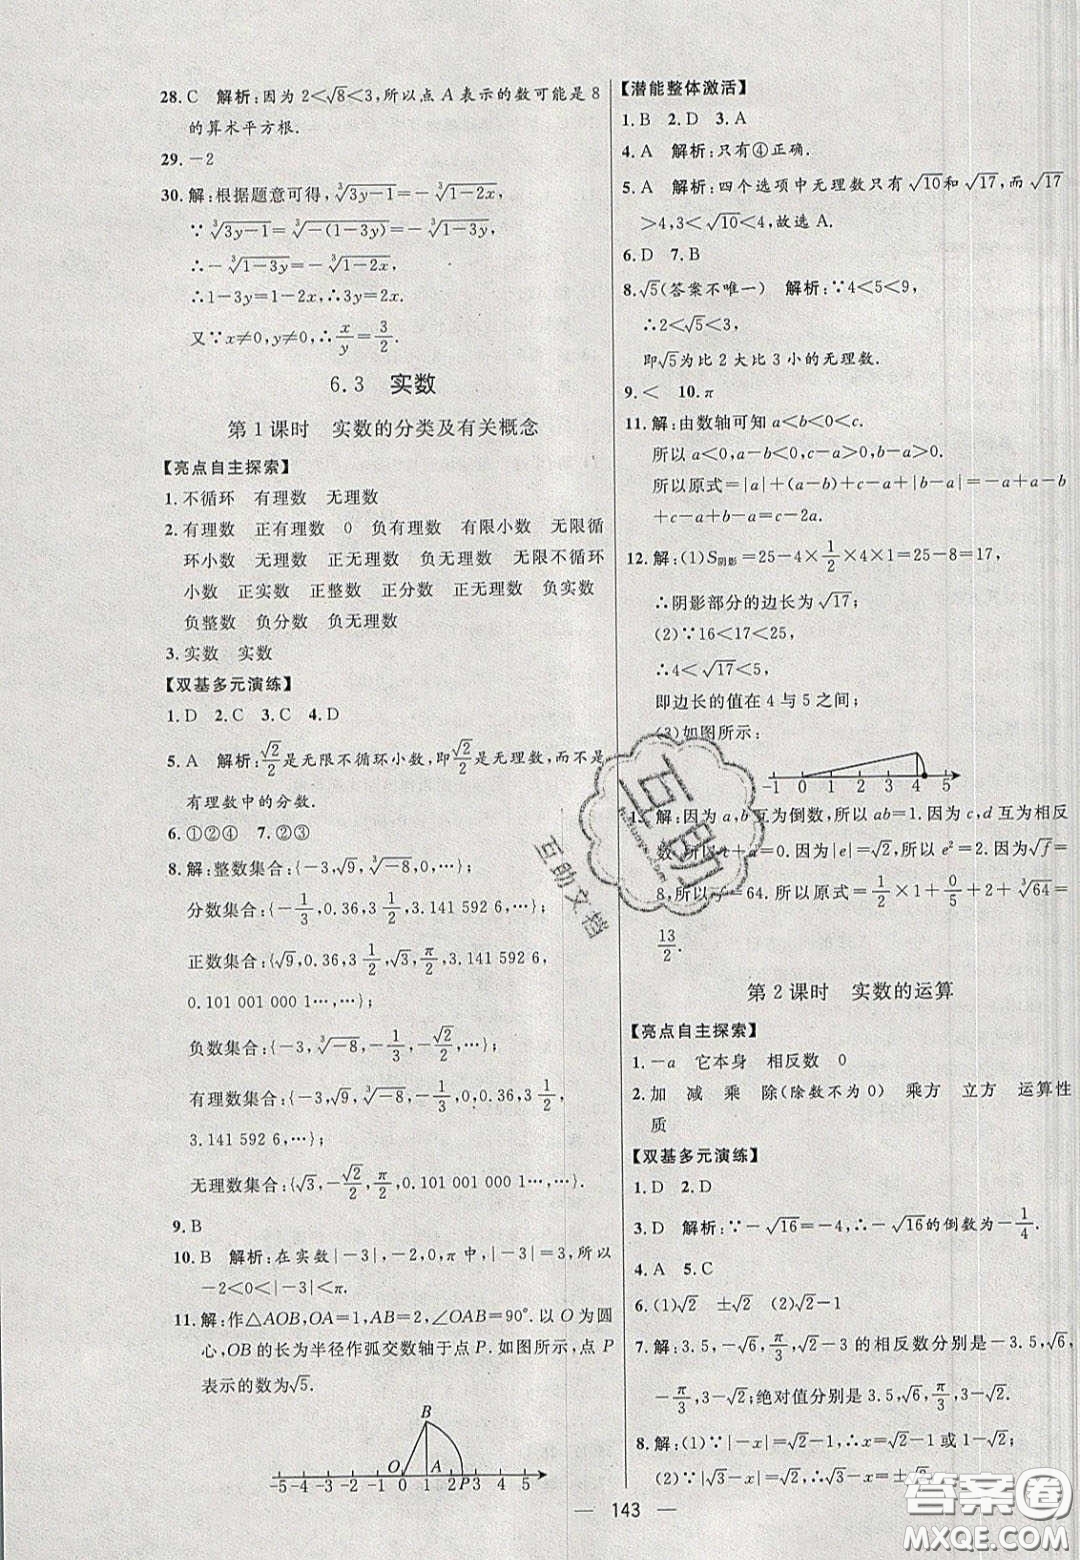 28. C　解析:因为 2<√8<3,所以点 A 表示的数可能是 8
的算术平方根.
29. −2
30. 解:根据题意可得,∛(3y−1)=−∛(1−2x),
∵∛(3y−1)=∛(−(1−3y))=−∛(1−3y),
∴−∛(1−3y)=−∛(1−2x),
∴1−3y=1−2x,∴3y=2x.
又∵x≠0,y≠0,∴x/y=3/2.
6.3　实数
第 1 课时　实数的分类及有关概念
【亮点自主探索】
1. 不循环　有理数　无理数
2. 有理数　正有理数　0　负有理数　有限小数　无限循
环小数　无理数　正无理数　负无理数　无限不循环
小数　正实数　正整数　正分数　正无理数　负实数
负整数　负分数　负无理数
3. 实数　实数
【双基多元演练】
1. D　2. C　3. C　4. D
5. A　解析:√2/2是无限不循环小数,即√2/2是无理数,而不是
有理数中的分数.
6. ①②④　7. ②③
8. 解:整数集合:{−3,√9,∛−8,0,…};
分数集合:{−1/3,0.36,3 1/2,3.141 592 6,…};
正数集合:{√9,0.36,3 1/2,√3,π/2,3.141 592 6,
0.101 001 000 1…,…};
负数集合:{−3,∛−8,−1/3,−√2/2,…};
有理数集合:{−3,√9,∛−8,−1/3,0.36,3 1/2,0,
3.141 592 6,…};
无理数集合:{√3,−√2/2,π/2,0.101 001 000 1…,…}.
9. B
10. B　解析:在实数|−3|,−2,0,π 中,|−3|=3,所以
−2<0<|−3|<π.
11. 解:作△AOB,OA=1,AB=2,∠OAB=90°.以 O 为圆
心,OB 的长为半径作弧交数轴于点 P.如图所示,点 P
表示的数为√5.
B
O A P
−5 −4 −3 −2 −1 0 1 2 3 4 5
【潜能整体激活】
1. B　2. D　3. A
4. A　解析:只有④正确.
5. A　解析:四个选项中无理数只有√10和√17,而√17
>4,3<√10<4,故选 A.
6. D　7. B
8. √5(答案不唯一)　解析:∵4<5<9,
∴2<√5<3,
即√5为比 2 大比 3 小的无理数.
9. <　10. π
11. 解:由数轴可知 a<b<0<c.
所以 a<0,a−b<0,c−a>0,b−a>0.
所以原式=|a|+(a−b)+c−a+|b−a|=−a+a−b
+c−a+b−a=c−2a.
12. 解:(1)S阴影=25−4×1/2×4×1=25−8=17,
∴阴影部分的边长为√17;
(2)∵16<17<25,
∴4<√17<5,
即边长的值在 4 与 5 之间;
(3)如图所示:
−1 0 1 2 3 4 5
13. 解:因为 a,b 互为倒数,所以 ab=1.因为 c,d 互为相反
数,所以 c+d=0.因为|e|=√2,所以 e²=2.因为√f=
8,所以 f=64.所以原式=1/2×1+0/5+2+∛64=
13/2.
第 2 课时　实数的运算
【亮点自主探索】
1. −a　它本身　相反数　0
2. 加　减　乘　除(除数不为 0)　乘方　立方　运算性
质
【双基多元演练】
1. D　2. D
3. D　解析:∵−√16=−4,∴−√16的倒数为−1/4.
4. A　5. C
6. (1)√2　±√2　(2)√2−1
7. 解:3.5,−√6,π/3,√2−3 的相反数分别是−3.5,√6,
−π/3,3−√2;绝对值分别是 3.5,√6,π/3,3−√2.
8. 解:(1)∵|−x|=√2−1,∴x=1−√2或√2−1;
(2)∵|√3−x|=√2,∴√3−x=±√2,
— 143 —
互助
互助文档
答案圈
MXQE.COM